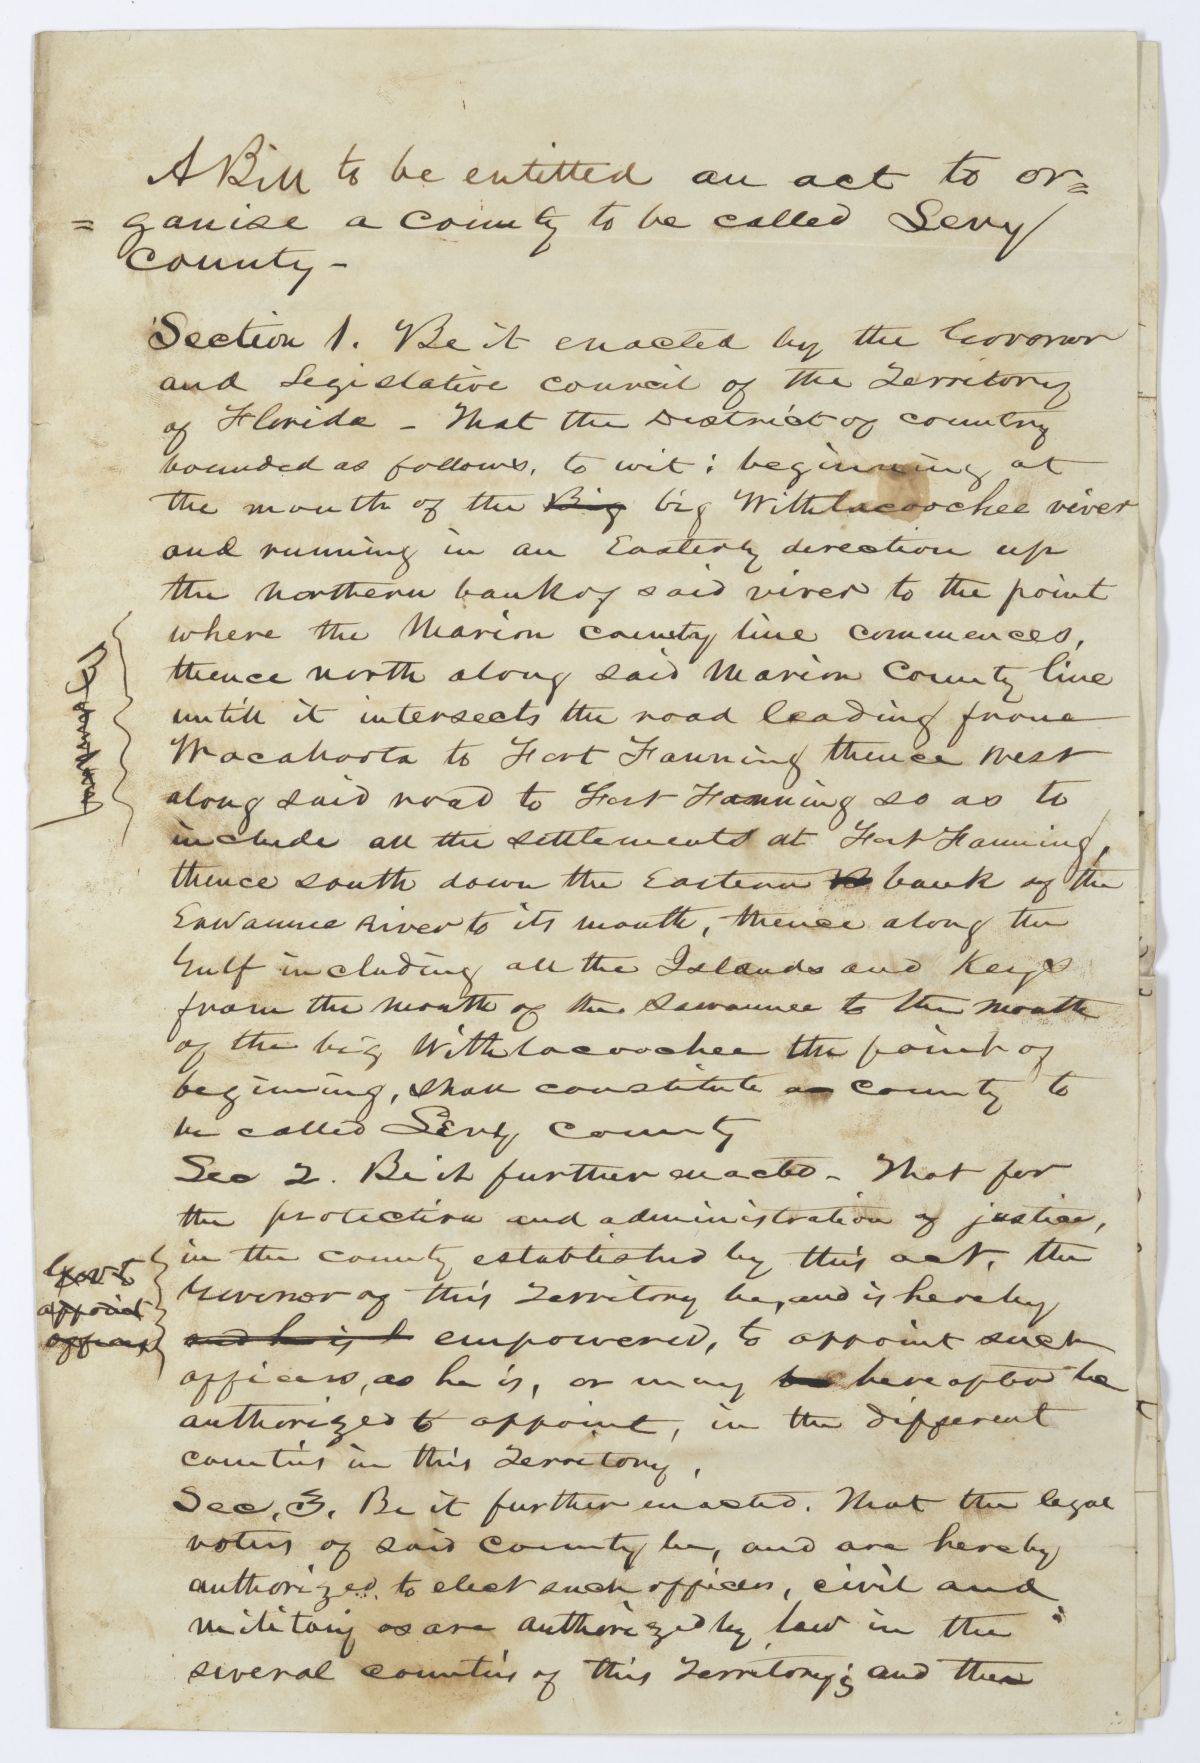 A Bill to be entitled an act to or=
=ganise a county to be called Levy
County-
Section 1. Be it enacted by the Govoner
and Legislative Council of the Territory
of Florida - That the District of country
bounded as follows, to wit: beginning at
the mouth of the Big big Withlacoochee river
and running in an Easterly direction up
the northern bank of said river to the point
where the Marion county line commences,
thence north along said Marion County line
untill it intersects the road leading from
Wacahoota to Fort Fanning thence West
along said road to Fort Fanning so as to
include all the settlements at Fort Fanning,
thence south down the Eastern bank of the
Suwannee River to its mouth, thence along the
Gulf including all the Islands and Keys
from the mouth of the Suwannee to the mouth
of the big Withlacoochee the point of
beginning, shall constitute a county to
be called Levy County
Sec 2. Be it further enacted - That for
the protection and administration of justice,
in the county established by this act, the
Govenor of this Territory be, and is hereby
and he is h empowered, to appoint such
officers, as he is, or may be hereafter be
authorized to appoint, in the different
counties in this Territory,
Sec, 3, Be it further enacted. That the legal
voters of said county be, and are hereby
authorized to elect such officers, civil and
military as are authorized by law in the
several counties of this Territory; and the
Gov to
appoint
officers